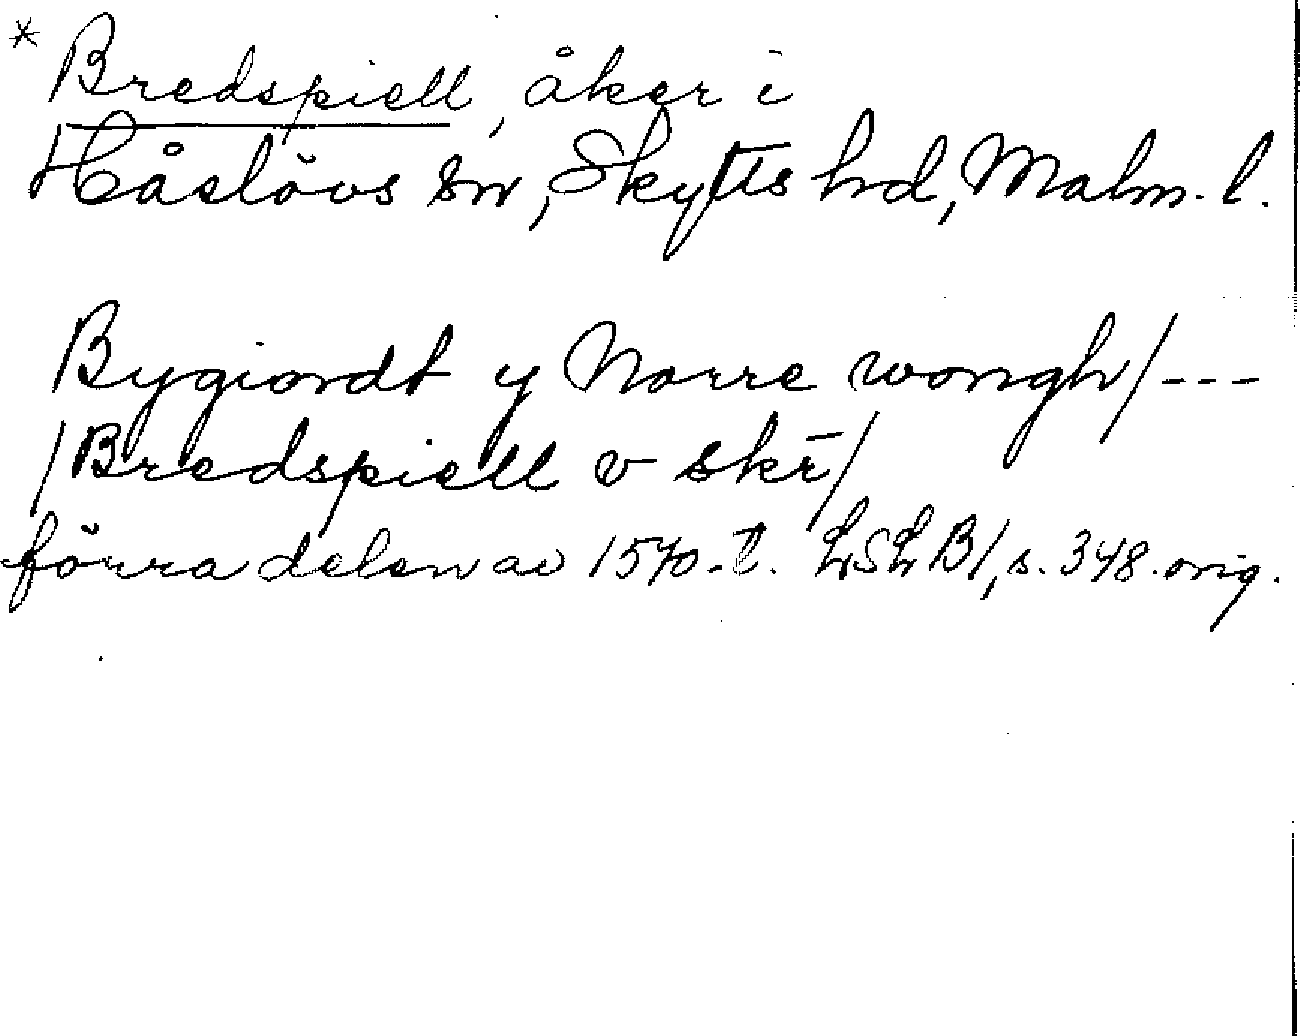 * Bredspiell, åker i
Håslövs sn, Skytts hd, Malm. l.
Bygiordt y Norre wongh/---
/Bredspiell v skr̄/
förra delen av 1570-t. LSLB1, s. 348 orig.